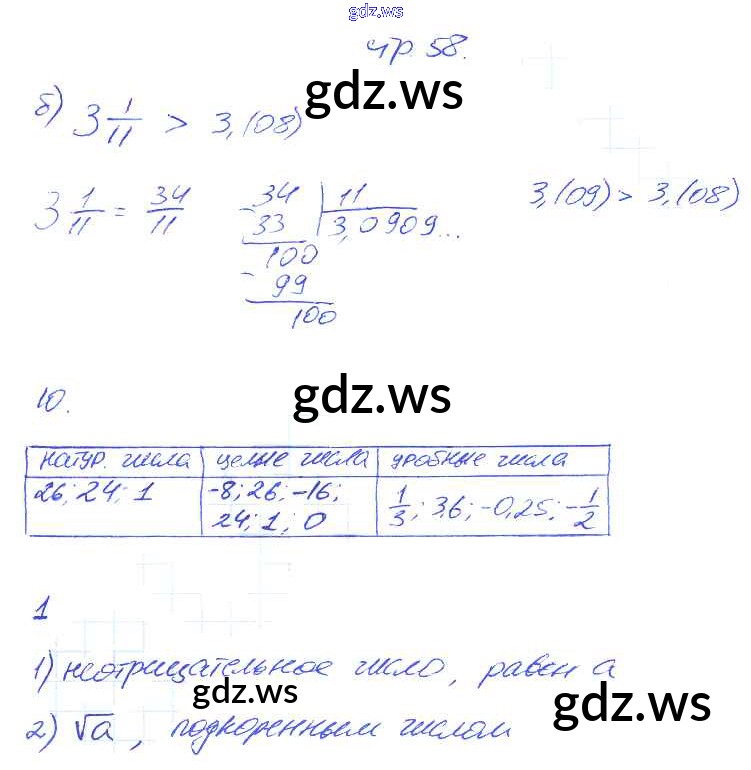 gdz.ws
стр. 58.
gdz.ws
б) 3 1/11 > 3,(08)
3 1/11 = 34/11
34 | 11
- 33 | 3,0909...
100
- 99
100
3,(09) > 3,(08)
gdz.ws
10.
натур. числа | целые числа | дробные числа
26; 24; 1 | -8; 26; -16; 24; 1; 0 | 1/3; 3,6; -0,25; -1/2
1
1) неотрицательное число, равен a
gdz.ws
gdz.ws
2) √a, подкоренным числом